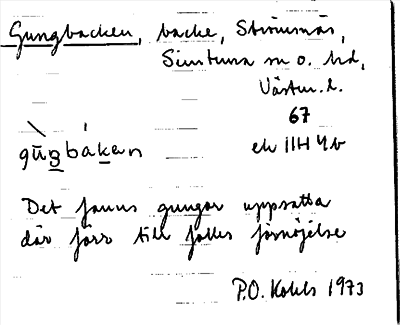 Gungbacken, backe, Strömsnäs,
Simtuna sn o. hd,
Västm. l.
67
gūŋbakan ek 11H 4b
Det fanns gungor uppsatta
där förr till folks förnöjelse
P.O. Kohls 1973